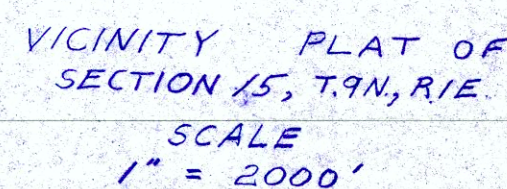 VICINITY PLAT OF
SECTION 15, T.9N., R1E
SCALE
1" = 2000'